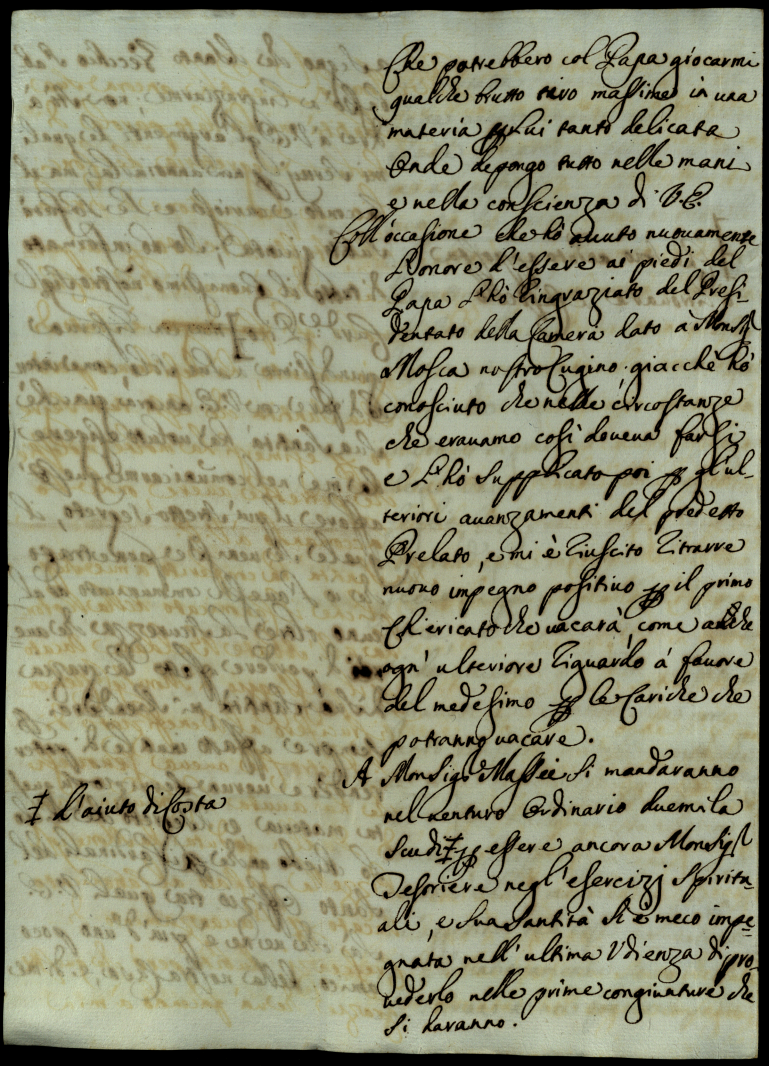 che potrebbero col Papa giocarmi
qualche brutto tiro massime in una
materia p lui tanto delicata
Onde depongo tutto nelle mani
e nella conscienza di V.E.
Coll'occasione che hò auuto nuouamente
l'onore d'essere ai piedi del
Papa l'hò ringraziato del Presi-
dentato della Camera dato à Monsig.r
Mosca nostro Cugino, giacchè hò
conosciuto che nelle circostanze
che erauamo così doueua farsi
e l'hò supplicato poi p gl'ul-
teriori auanzamenti del predetto
Prelato, e mi è riuscito ritrarre
nuouo impegno positiuo p il primo
Chiericato che uacarà, come anche
ogn' ulteriore riguardo à fauore
del medesimo p le Cariche che
potranno uacare.
A Monsig.r Massei si mandaranno
nel uenturo Ordinario duemila
scudi ‡ p essere ancora Monsig.r
Tesoriere negl'esercizj Spiritu-
ali, e Sua Santità si è meco impe-
gnata nell'ultima Udienza di pro-
uederlo nelle prime congiunture che
si daranno.
‡ d'aiuto di Costa